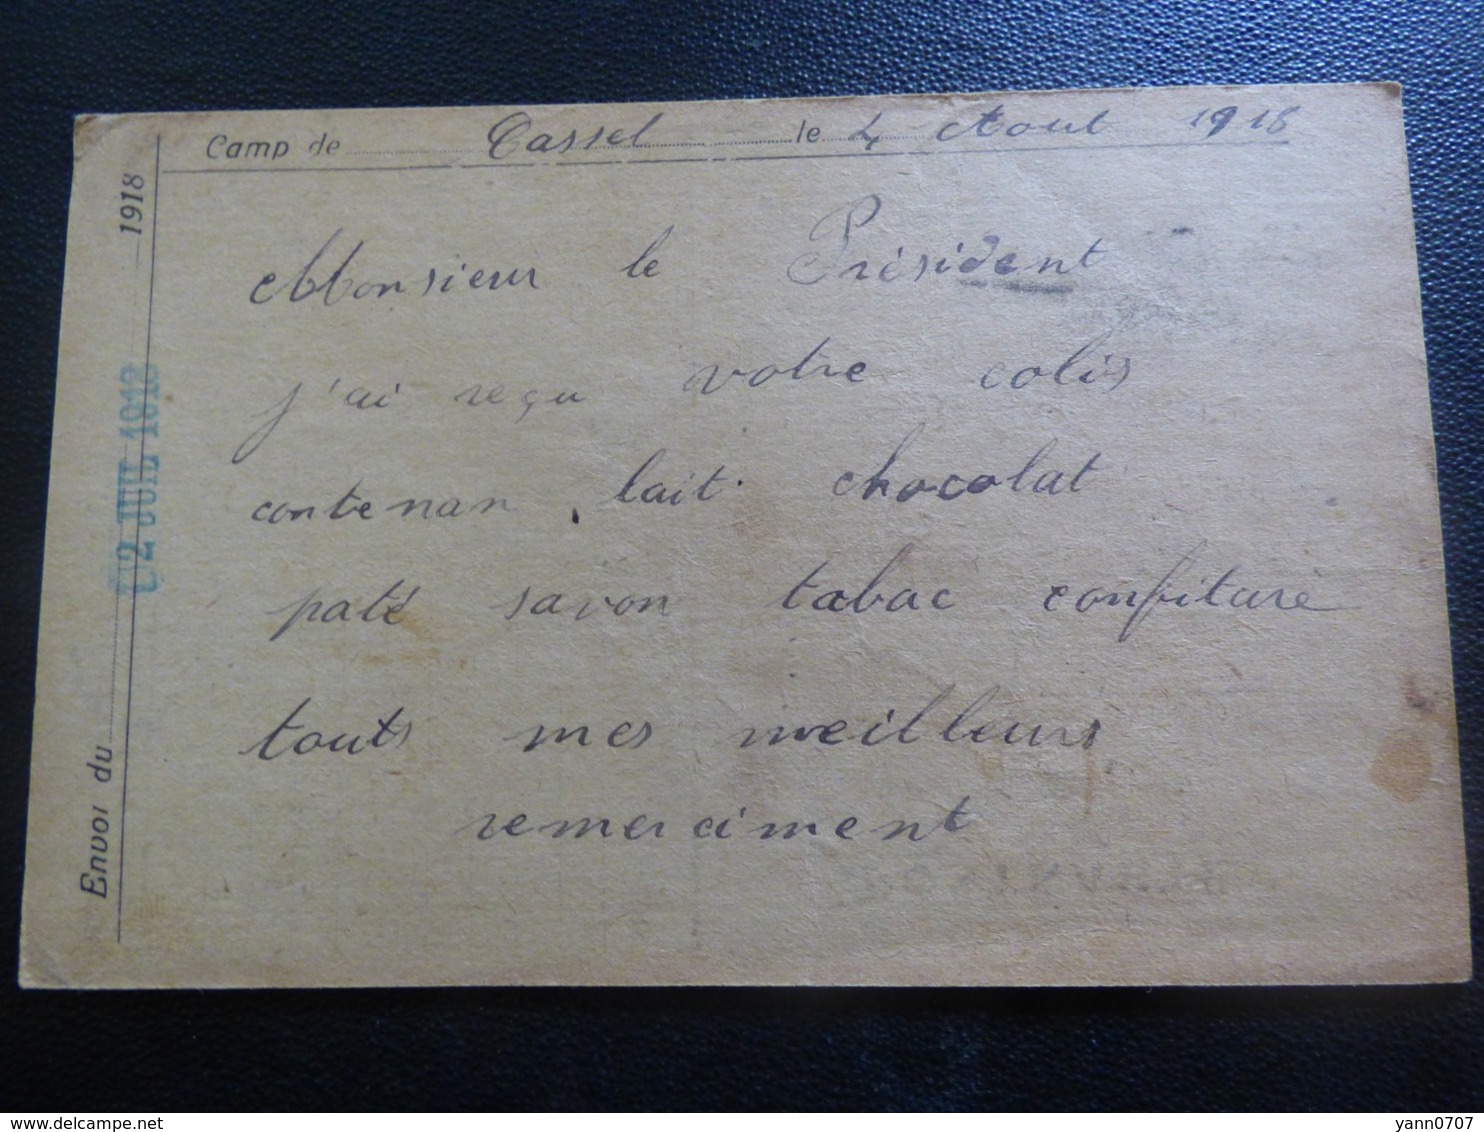 Camp de Cassel le 4 Aout 1918
Monsieur le Président
j'ai reçu votre colis
contenan lait chocolat
paté savon tabac confiture
touts mes meilleurs
remerciment
Envoi du 1918
2 JUIL 1918
yann0707
delcampe.net